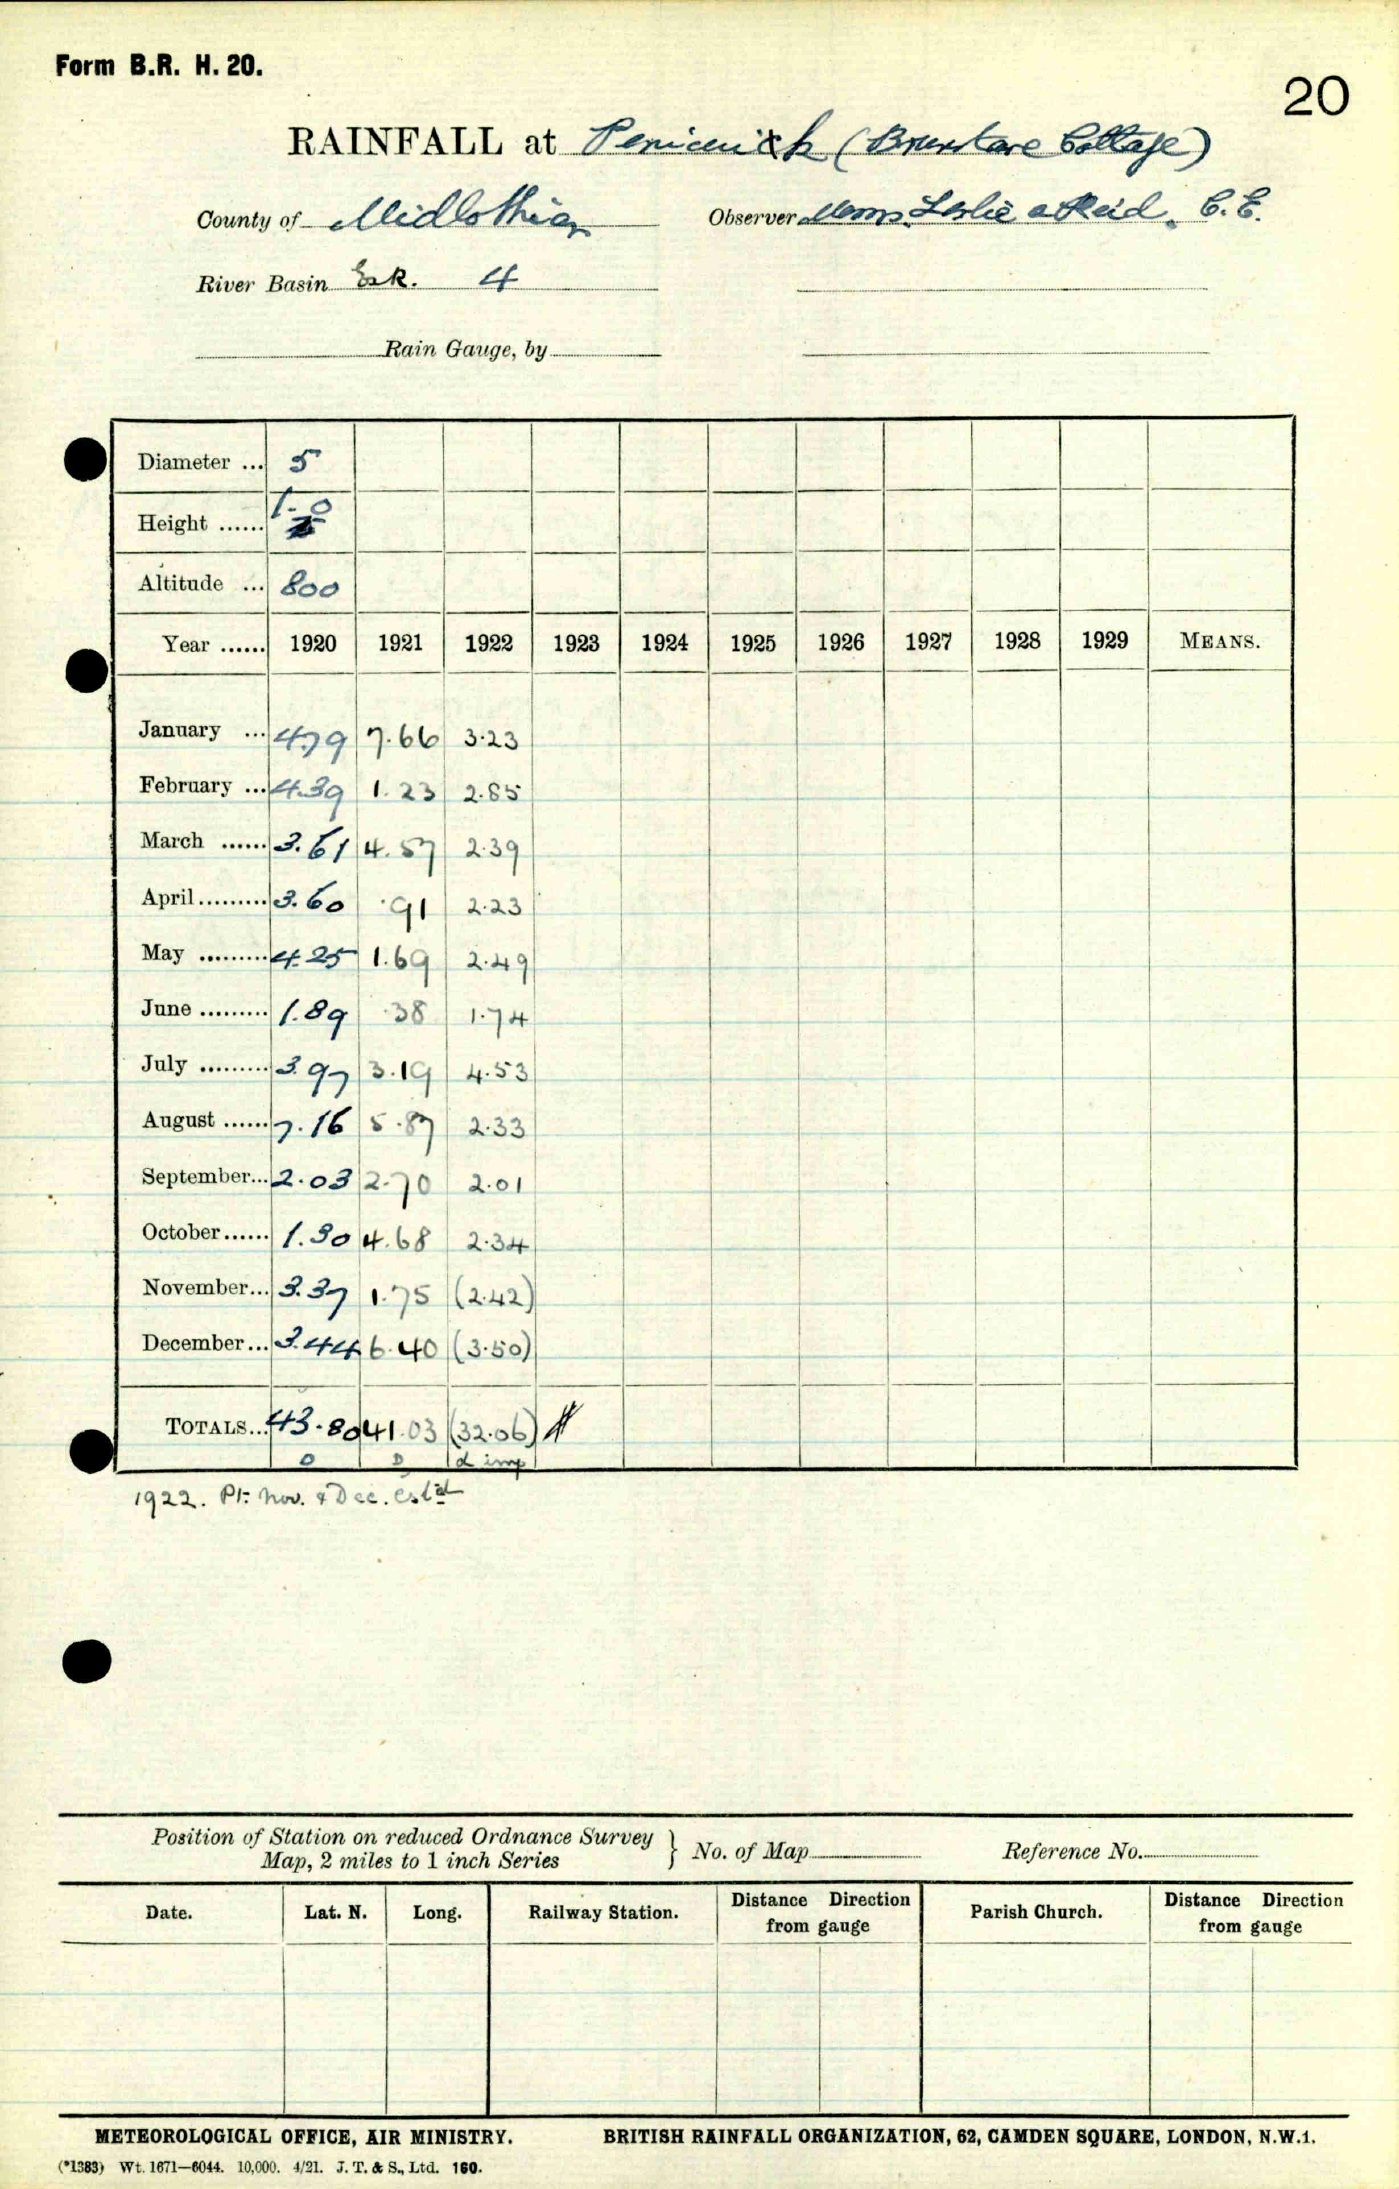 Form B.R. H. 20.
20
RAINFALL at Penicuick (Brunstane Cottage)
County of Midlothian Observer Messrs. Leslie & Reid, C.E.
River Basin Esk. 4
Rain Gauge, by
Diameter ... 5
Height ...... 1-0
Altitude ... 800
Year ...... 1920 1921 1922 1923 1924 1925 1926 1927 1928 1929 MEANS.
January ... 4.79 7.66 3.23
February ... 4.39 1.23 2.85
March ...... 3.61 4.57 2.39
April ......... 3.60 .91 2.23
May ......... 4.25 1.69 2.49
June ......... 1.89 .38 1.74
July ......... 3.97 3.19 4.53
August ...... 7.16 5.87 2.33
September... 2.03 2.70 2.01
October ...... 1.30 4.68 2.34
November... 3.37 1.75 (2.42)
December ... 3.44 6.40 (3.50)
TOTALS... 43.80 41.03 (32.06)
D D d imp
1922. Pt. Nov. & Dec. estd
Position of Station on reduced Ordnance Survey
Map, 2 miles to 1 inch Series } No. of Map Reference No.
Date. Lat. N. Long. Railway Station. Distance Direction from gauge Parish Church. Distance Direction from gauge
METEOROLOGICAL OFFICE, AIR MINISTRY. BRITISH RAINFALL ORGANIZATION, 62, CAMDEN SQUARE, LONDON, N.W.1.
(*1383) Wt. 1671—6044. 10,000. 4/21. J. T. & S., Ltd. 160.